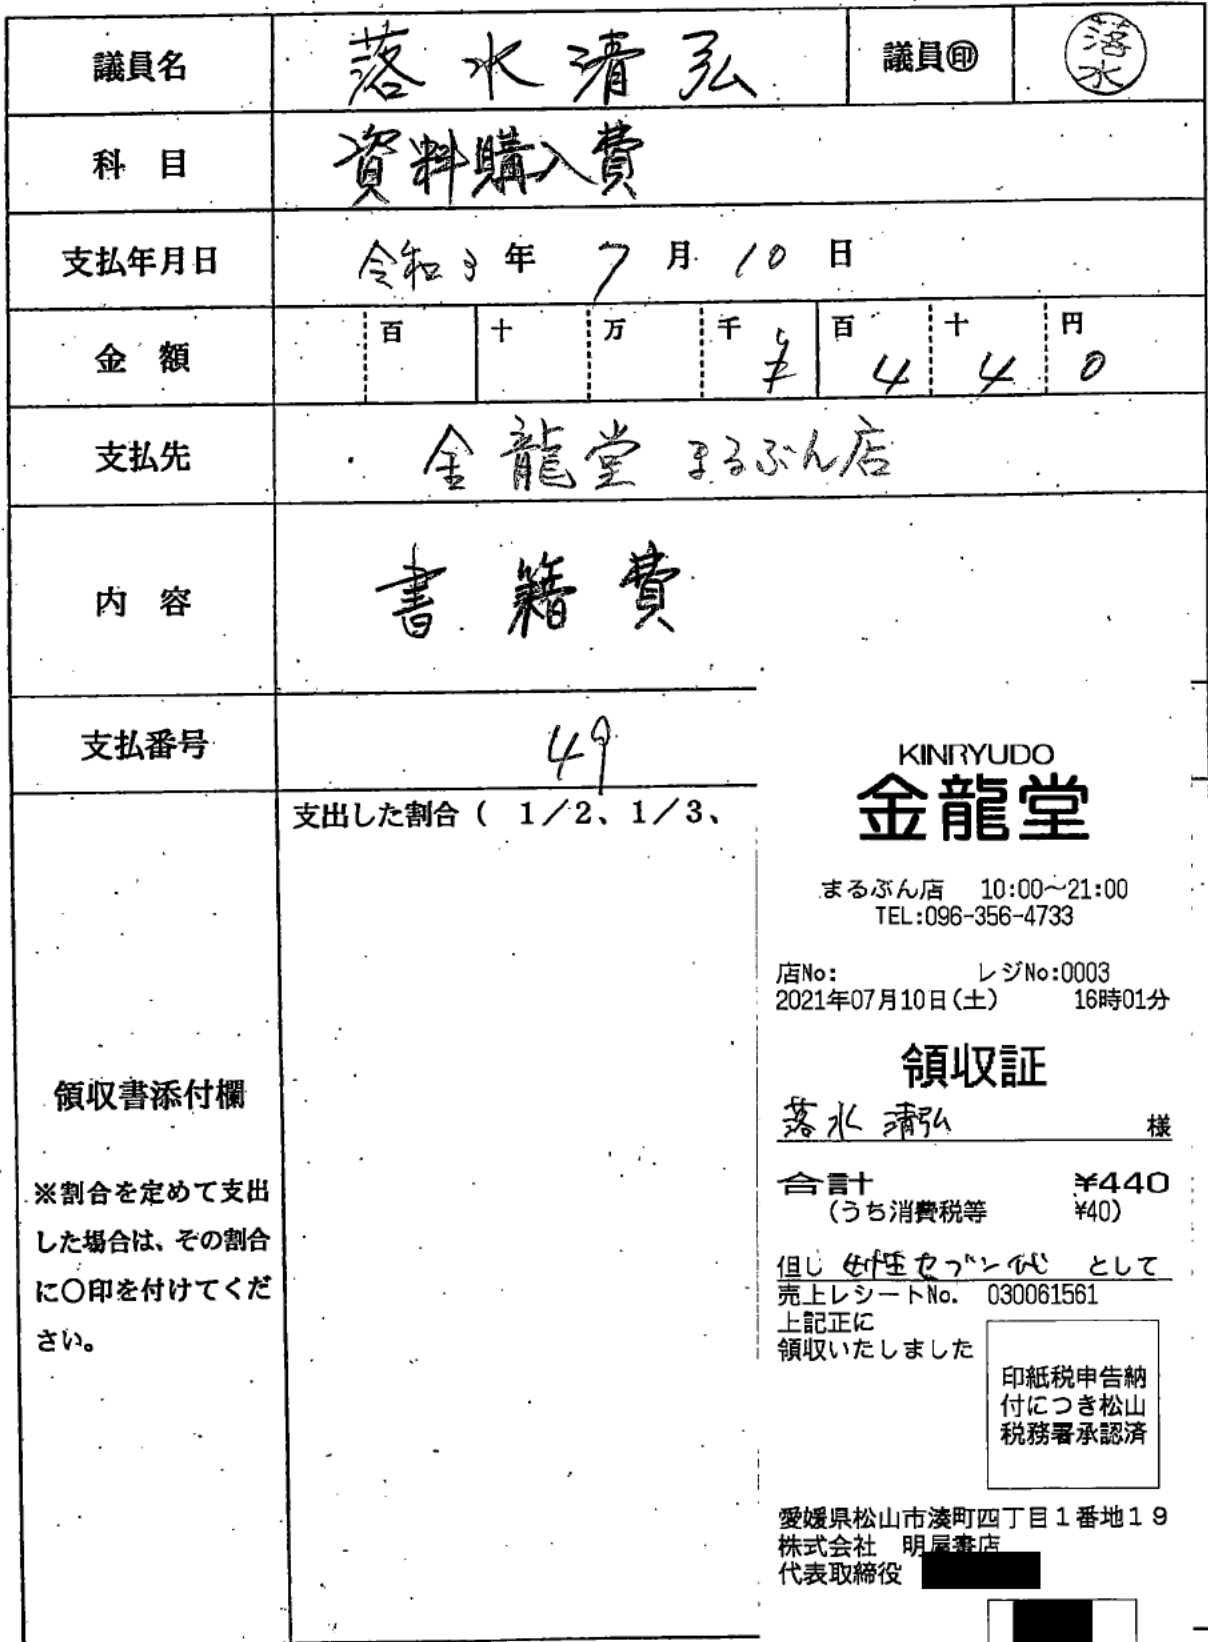 議員名 落水清弘 議員㊞ 落水
科 目 資料購入費
支払年月日 令和3年 7月 10日
金 額 百 十 万 千 百 十 円
¥ 4 4 0
支払先 金龍堂 まるぶん店
内 容 書籍費
支払番号 49
支出した割合( 1/2、1/3、
領収書添付欄
※割合を定めて支出
した場合は、その割合
に〇印を付けてくだ
さい。
KINRYUDO
金龍堂
まるぶん店 10:00~21:00
TEL:096-356-4733
店No: レジNo:0003
2021年07月10日(土) 16時01分
領収証
落水 清弘 様
合計 ¥440
(うち消費税等 ¥40)
但し 女性セブン代 として
売上レシートNo. 030061561
上記正に
領収いたしました
印紙税申告納
付につき松山
税務署承認済
愛媛県松山市湊町四丁目1番地19
株式会社 明屋書店
代表取締役